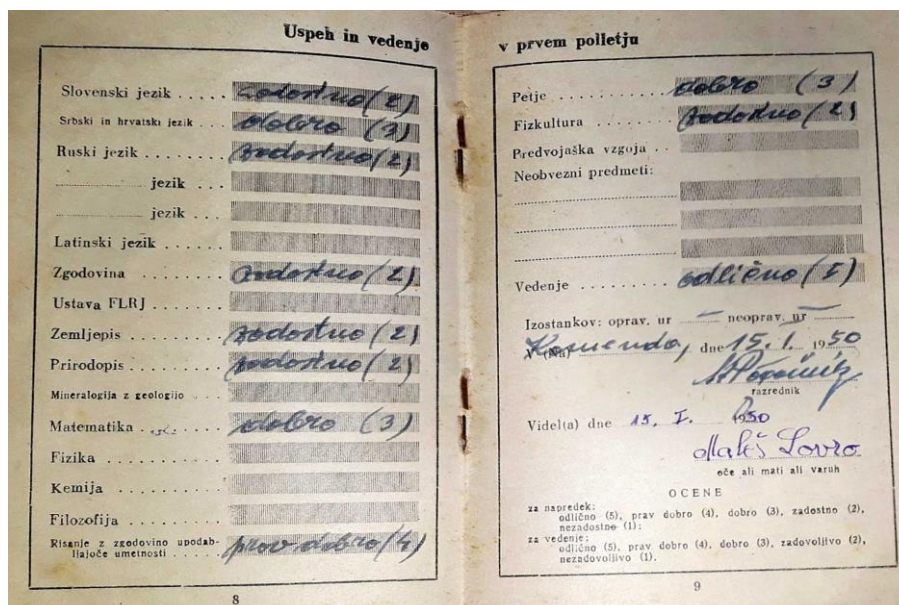 Uspeh in vedenje
Slovenski jezik ..... zadostno (2)
Srbski in hrvatski jezik ... dobro (3)
Ruski jezik ........ zadostno (2)
............ jezik ...
............ jezik ...
Latinski jezik ......
Zgodovina ........ zadostno (2)
Ustava FLRJ ......
Zemljepis ........ zadostno (2)
Prirodopis ....... zadostno (2)
Mineralogija z geologijo ...
Matematika ...... dobro (3)
Fizika ...........
Kemija ..........
Filozofija ........
Risanje z zgodovino upodab-
ljajoče umetnosti ...... prav dobro (4)
8
v prvem polletju
Petje ........... dobro (3)
Fizkultura ....... zadostno (2)
Predvojaška vzgoja ..
Neobvezni predmeti:
Vedenje ......... odlično (5)
Izostankov: oprav. ur — neoprav. ur —
V (Na) Komenda, dne 15. I. 1950
razrednik
Videl(a) dne 15. I. 1950
Maleš Lovro
oče ali mati ali varuh
OCENE
za napredek:
odlično (5), prav dobro (4), dobro (3), zadostno (2),
nezadostno (1);
za vedenje:
odlično (5), prav dobro (4), dobro (3), zadovoljivo (2),
nezadovoljivo (1).
9